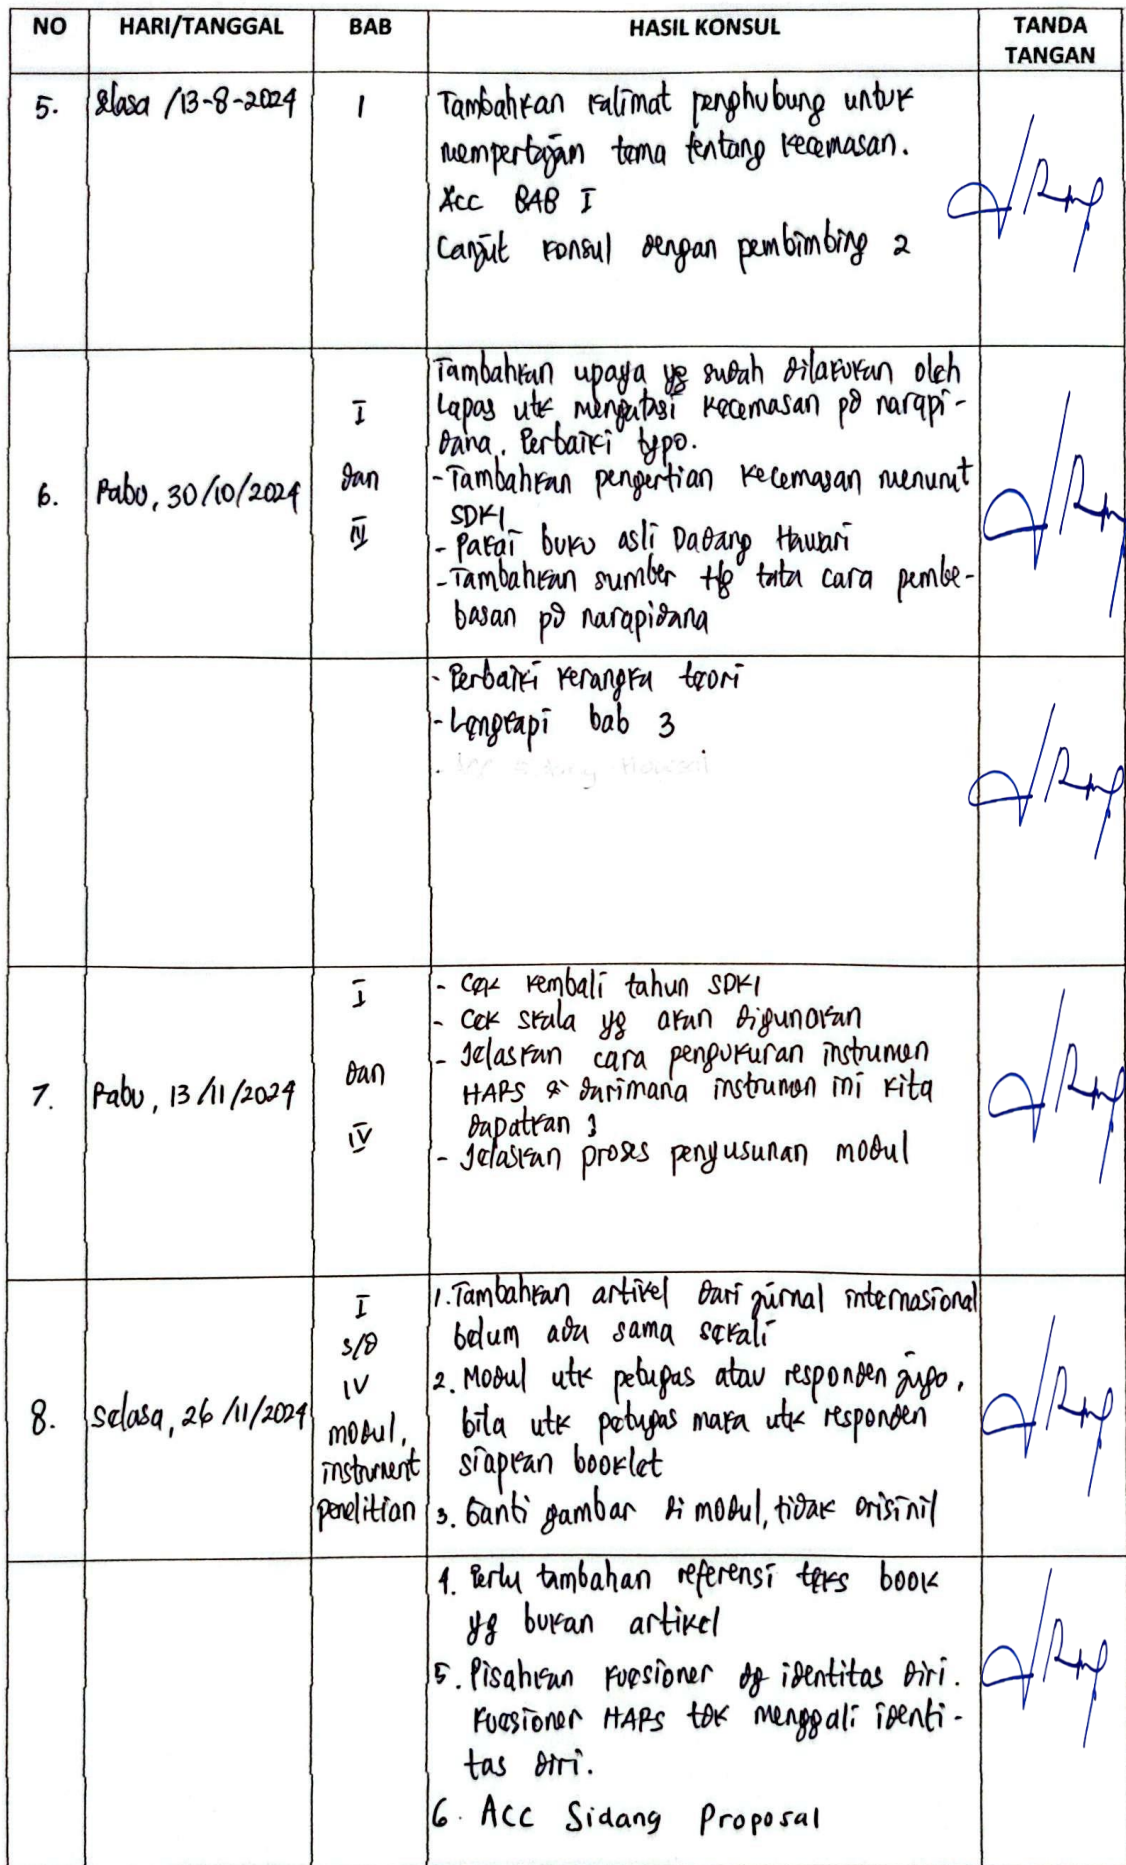 NO HARI/TANGGAL BAB HASIL KONSUL TANDA TANGAN
5. Selasa / 13-8-2024 I Tambahkan kalimat penghubung untuk
mempertajam tema tentang kecemasan.
Acc BAB I
Lanjut konsul dengan pembimbing 2
6. Rabu, 30/10/2024 I dan IV Tambahkan upaya yg sudah dilakukan oleh
Lapas utk mengatasi kecemasan pd narapi-
dana. Perbaiki typo.
- Tambahkan pengertian kecemasan menurut
SDKI
- Pakai buku asli Dadang Hawari
- Tambahkan sumber ttg tata cara pembe-
basan pd narapidana
- Perbaiki kerangka teori
- Lengkapi bab 3
7. Rabu, 13/11/2024 I dan IV - Cek kembali tahun SDKI
- Cek skala yg akan digunakan
- Jelaskan cara pengukuran instrumen
HARS & darimana instrumen ini kita
dapatkan
- Jelaskan proses penyusunan modul
8. Selasa, 26/11/2024 I s/d IV modul, instrument penelitian 1. Tambahkan artikel dari jurnal internasional
belum ada sama sekali
2. Modul utk petugas atau responden juga,
bila utk petugas maka utk responden
siapkan booklet
3. Ganti gambar di modul, tidak orisinil
4. Perlu tambahan referensi teks book
yg bukan artikel
5. Pisahkan kuesioner dg identitas diri.
Kuesioner HARS tdk menggali identi-
tas diri.
6. Acc Sidang Proposal